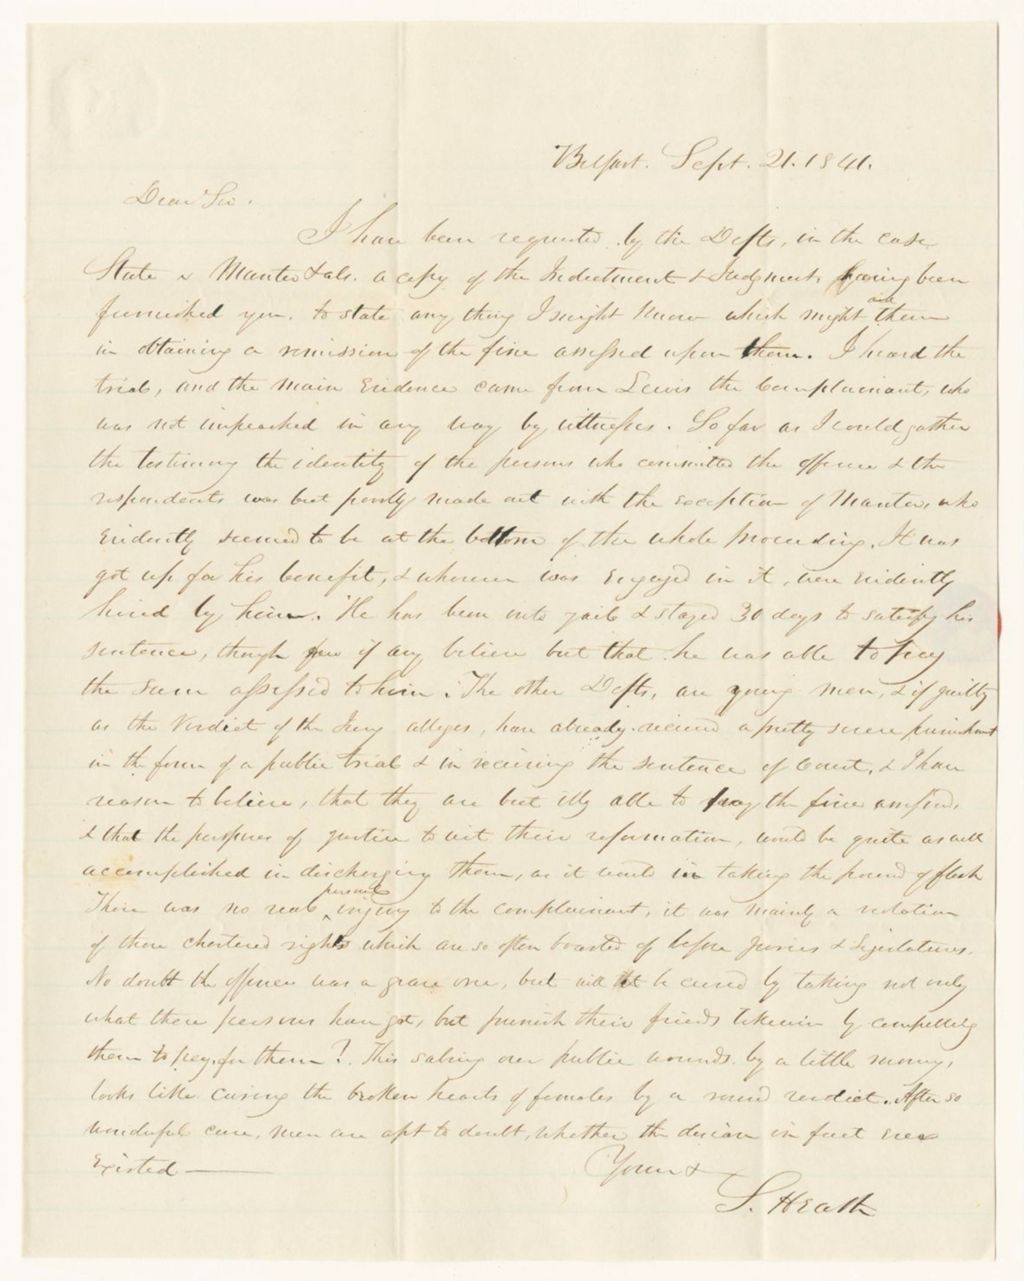 Belfast. Sept. 21. 1841.
Dear Sir.
I have been requested by the Defts, in the case
State v Manter & als. a copy of the Indictment & Judgment, having been
furnished you, to state any thing I might know which might aid them
in obtaining a remission of the fine assessed upon them. I heard the
trial, and the main Evidence came from Lewis the Complainant, who
was not impeached in any way by witnesses. So far as I could gather
the testimony the identity of the persons who committed the offence & the
respondents was but poorly made out with the exception of Manter, who
Evidently seemed to be at the bottom of the whole proceeding. It was
got up for his benefit, & whoever was Engaged in it, were Evidently
hired by him. He has been into jail & stayed 30 days to satisfy his
sentence, though few if any believe but that he was able to pay
the sum assessed to him. The other Defts, are young men, & if guilty
as the Verdict of the Jury alleges, have already received a pretty severe punishment
in the form of a public trial & in receiving the sentence of Court, & I have
reason to believe, that they are but illy able to pay the fine assessed,
& that the purposes of justice to wit their reformation, would be quite as well
accomplished in discharging them, as it would in taking the pound of flesh
There was no real personal injury to the complainant, it was mainly a violation
of those chartered rights which are so often boasted of before Juries & Legislatures.
No doubt the offence was a grave one, but will it be cured by taking not only
what these persons have got, but punish their friends likewise by compelling
them to pay for them? This salving over public wounds by a little money,
looks like curing the broken hearts of females by a round verdict. After so
wonderful cure, men are apt to doubt, whether the disease in fact ever
Existed —
Yours &
S. Heath